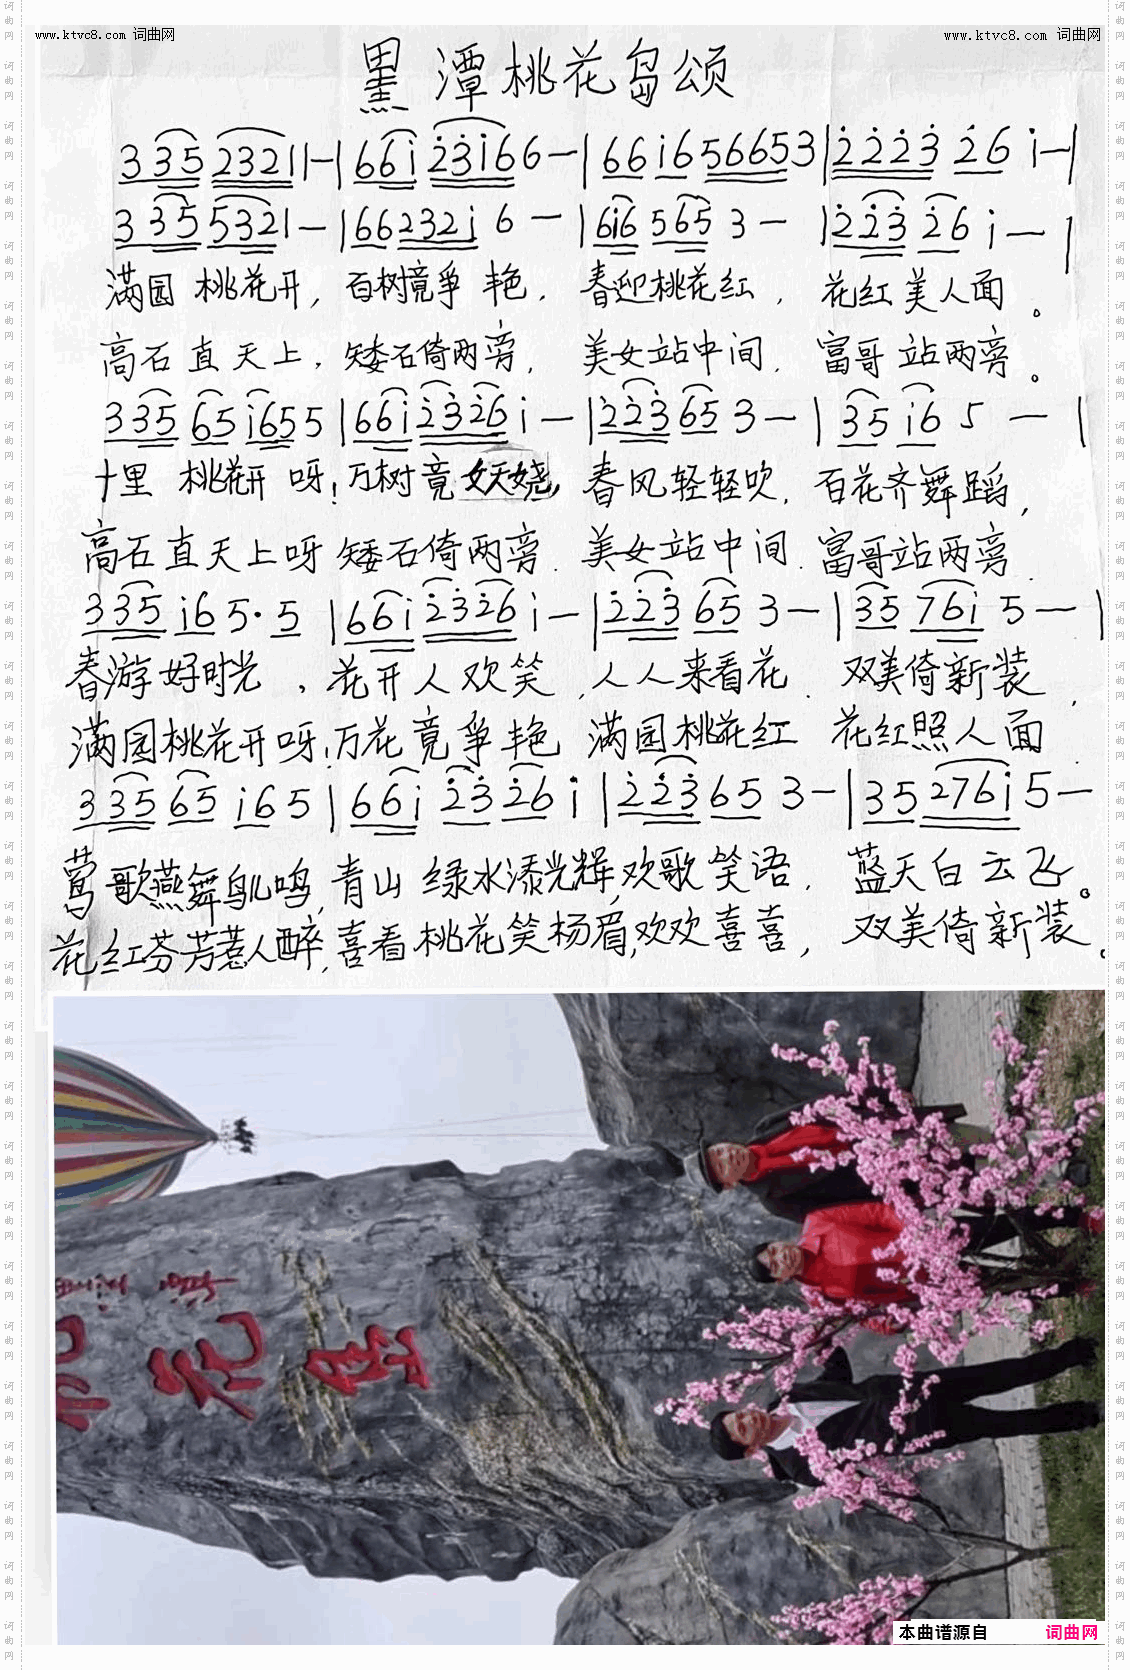 www.ktvc8.com 词曲网
www.ktvc8.com 词曲网
黑潭桃花岛颂
3 3 5 2 3 2 1 1 - | 6 6 i 2 3 i 6 6 - | 6 6 i 6 5 6 6 5 3 | 2 2 2 3 2 6 i - |
3 3 5 5 3 2 1 - | 6 6 2 3 2 i 6 - | 6 i 6 5 6 5 3 - | 2 2 3 2 6 i - |
满园 桃花开, 百树竟争 艳. 春迎桃花红, 花红美人面。
高石直天上, 矮石倚两旁, 美女站中间, 富哥站两旁。
3 3 5 6 5 i 6 5 5 | 6 6 i 2 3 2 6 i - | 2 2 3 6 5 3 - | 3 5 i 6 5 - |
十里 桃花开 呀! 万树竟妖娆, 春风轻轻吹, 百花齐舞蹈,
高石直天上呀 矮石倚两旁. 美女站中间. 富哥站两旁.
3 3 5 i 6 5 · 5 | 6 6 i 2 3 2 6 i - | 2 2 3 6 5 3 - | 3 5 7 6 i 5 - |
春游好时光, 花开人欢笑, 人人来看花. 双美倚新装,
满园桃花开呀! 万花竟争艳 满园桃花红 花红照人面
3 3 5 6 5 i 6 5 | 6 6 i 2 3 2 6 i | 2 2 3 6 5 3 - | 3 5 2 7 6 i 5 -
莺歌燕舞鸟儿鸣, 青山绿水添光辉, 欢歌笑语, 蓝天白云飞。
花红芬芳惹人醉, 喜看桃花笑杨眉, 欢欢喜喜, 双美倚新装.
花岛
本曲谱源自 词曲网